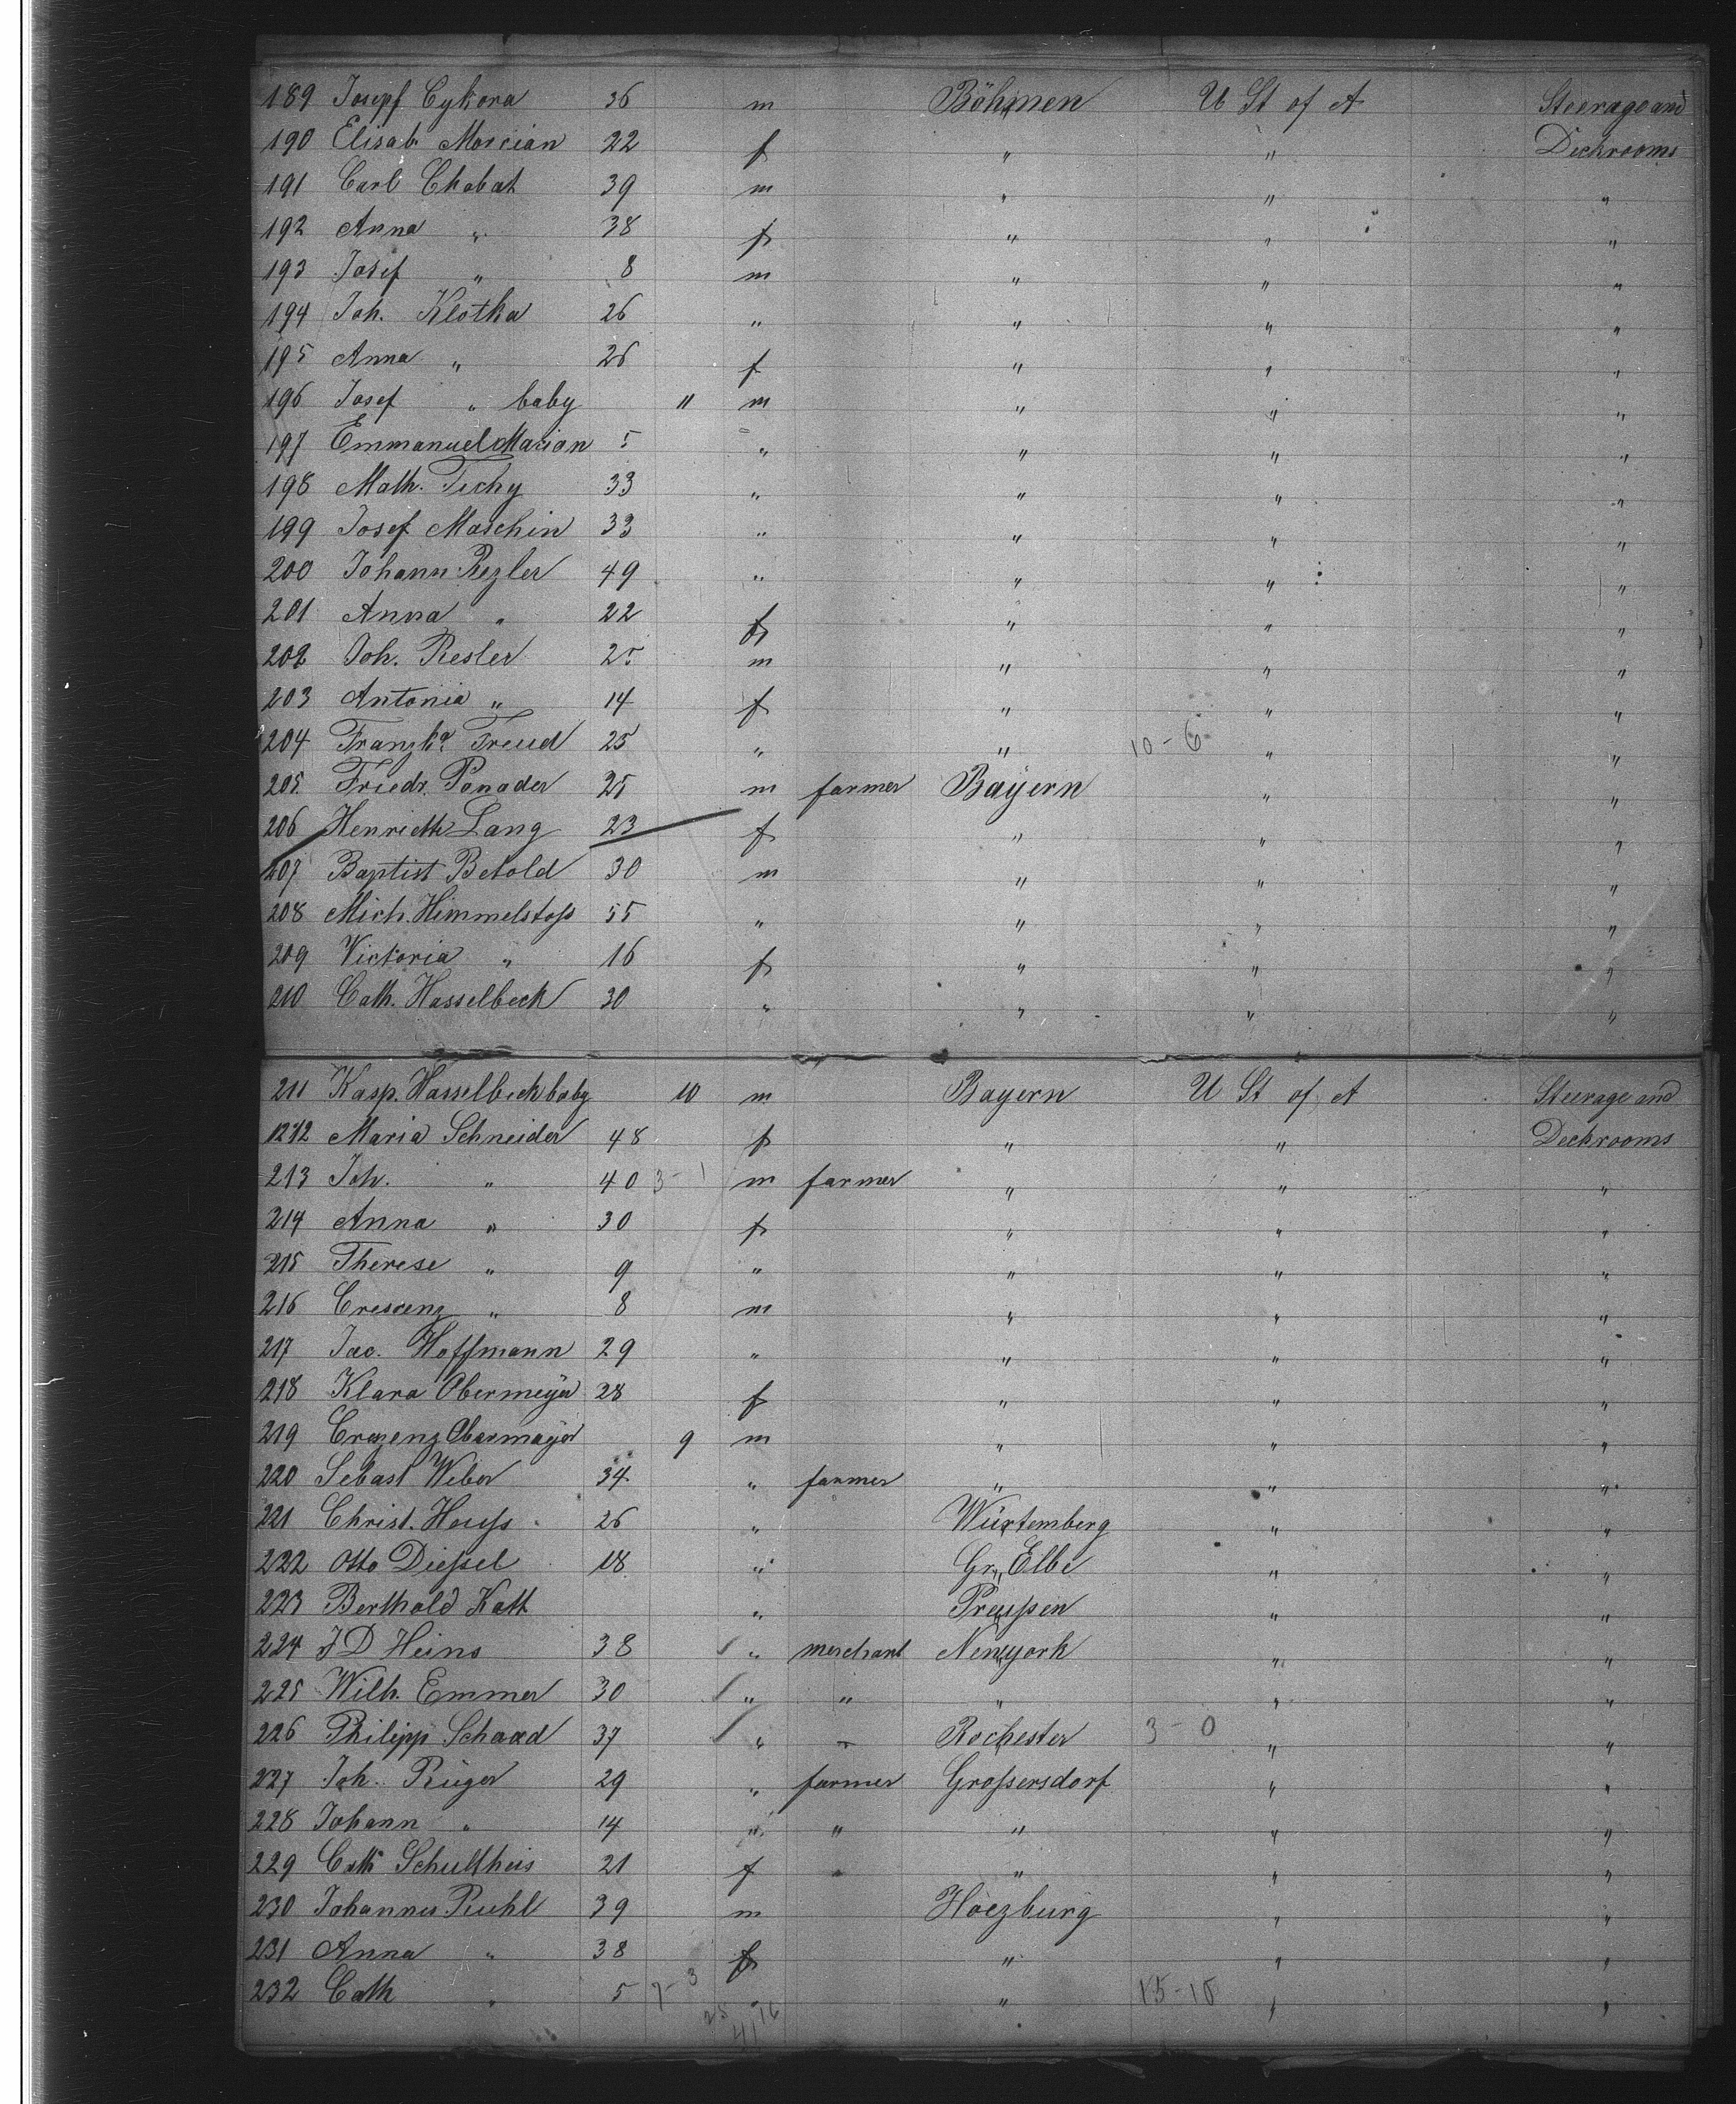 189 Josepf Cykora 36 m Böhmen U St of A Steerage and
190 Elisab. Morcian 22 f " " Deckrooms
191 Carl Chabat 39 m " " "
192 Anna " 38 f " " "
193 Josef " 8 m " " "
194 Joh. Klotka 26 " " " "
195 Anna " 26 f " " "
196 Josef " baby 11 m " " "
197 Emmanuel Marian 5 " " " "
198 Math. Tichy 33 " " " "
199 Josef Maschin 33 " " " "
200 Johann Rezler 49 " " " "
201 Anna " 22 f " " "
202 Joh. Resler 25 m " " "
203 Antonia " 14 f " " "
204 Franzka Freud 25 " " 10-6 " "
205 Friedr. Panader 25 m farmer Bayern " "
206 Henriette Lang 23 f " " "
207 Baptist Betold 30 m " " "
208 Mich. Himmelstoß 55 " " " "
209 Victoria " 16 f " " "
210 Cath. Hasselbeck 30 " " " "
211 Kasp. Hasselbeck baby 10 m Bayern U St of A Steerage and
1212 Maria Schneider 48 f " " Deckrooms
213 Joh. " 40 3-1 m farmer " " "
214 Anna " 30 f " " "
215 Therese " 9 " " " "
216 Crescenz " 8 m " " "
217 Jac. Hoffmann 29 " " " "
218 Klara Obermeÿer 28 f " " "
219 Creszenz Obermayer 9 m " " "
220 Sebast Weber 34 " farmer " " "
221 Christ. Hauß 26 " Würtemberg " "
222 Otto Dießel 18 " Gr. Elbe " "
223 Berthold Katt " Preußen " "
224 J D Heins 38 " merchant Newyork " "
225 Wilh. Emmer 30 " " " " "
226 Philipp Schaad 37 " " Rochester 3-0 " "
227 Joh. Rüger 29 " farmer Großersdorf " "
228 Johann " 14 " " " " "
229 Cath Schultheis 21 f " " " "
230 Johannes Ruhl 39 m Höezburg " "
231 Anna " 38 f " " "
232 Cath " 5 7-3 " " 15-10 " "
25 16
41